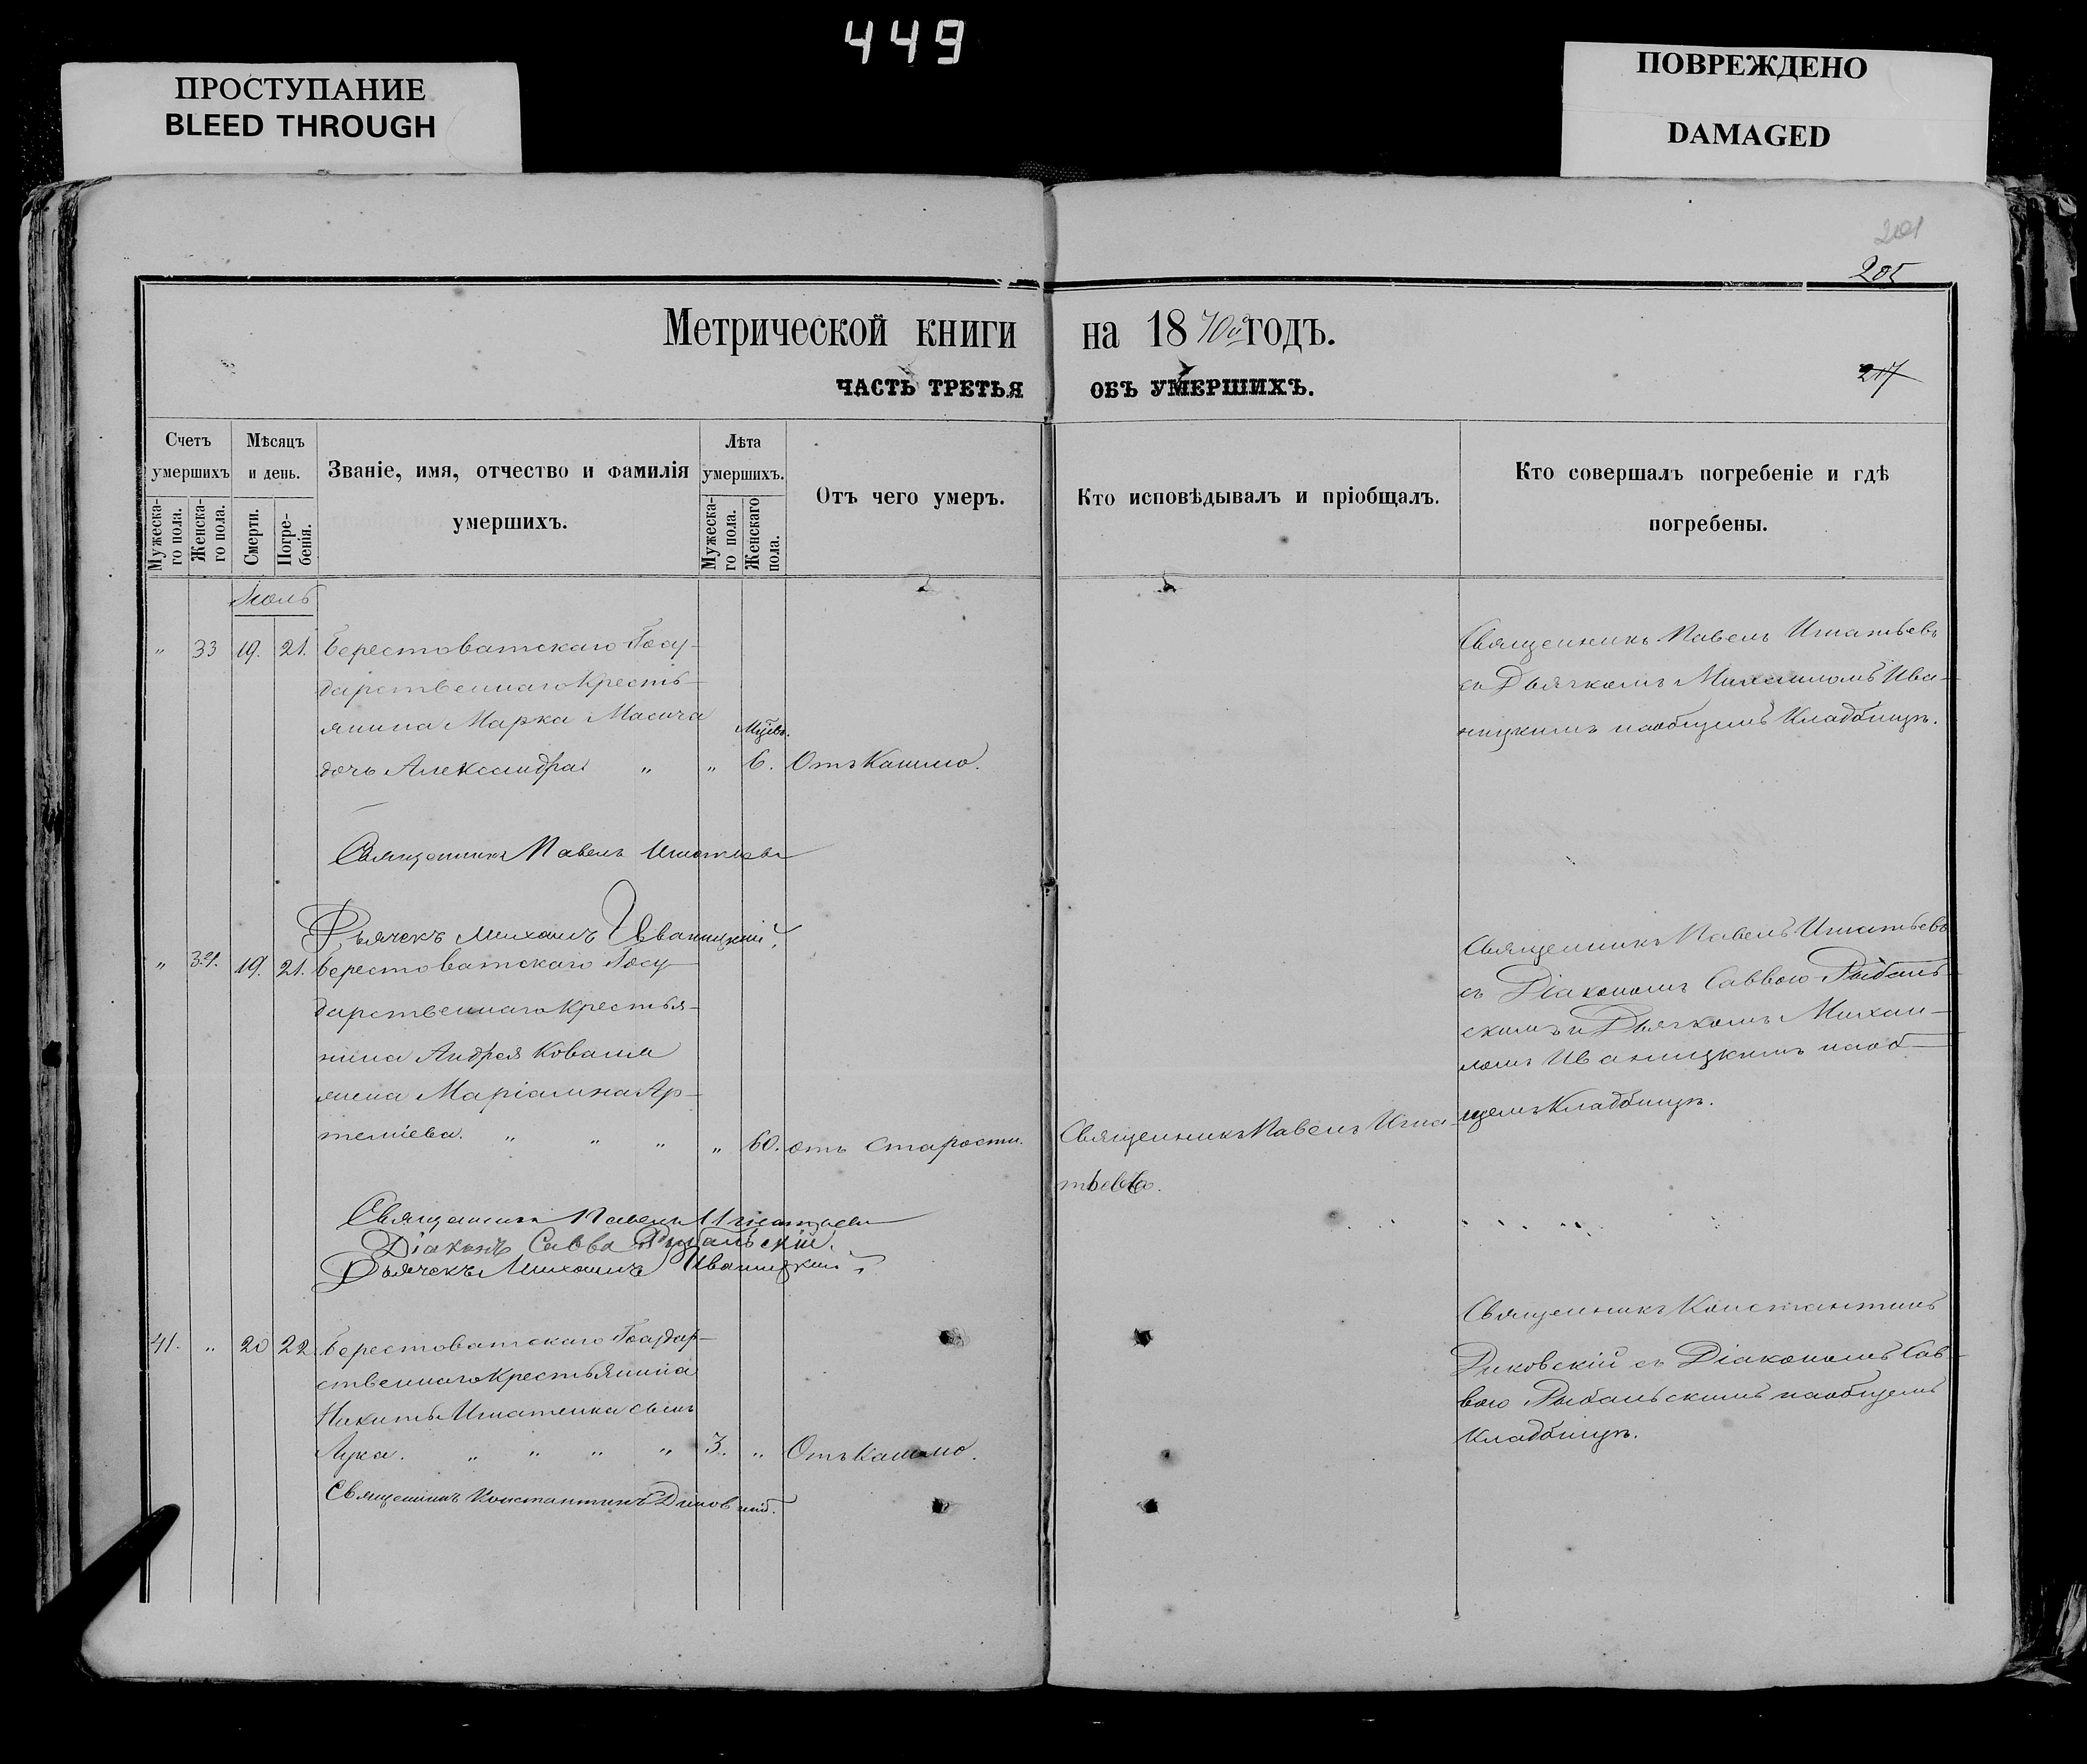 449
ПРОСТУПАНИЕ
BLEED THROUGH
ПОВРЕЖДЕНО
DAMAGED
201
205
217
Метрической книги на 1870й годъ.
ЧАСТЬ ТРЕТЬЯ ОБЪ УМЕРШИХЪ.
Счетъ умершихъ
Мужеска-
го пола.
Женска-
го пола.
Мѣсяцъ и день.
Смерти.
Погре-
бенія.
Званіе, имя, отчество и фамилія
умершихъ.
Лѣта умершихъ.
Мужеска-
го пола.
Женскаго
пола.
Отъ чего умеръ.
Кто исповѣдывалъ и пріобщалъ.
Кто совершалъ погребеніе и гдѣ
погребены.
Іюль
" 33 19. 21. Берестоватскаго Госу-
дарственнаго Кресть-
янина Марка Масича
дочь Александра " " 6. Отъ Кашлю.
Священникъ Павелъ Игнатьевъ
съ Дьячкомъ Михаиломъ Ива-
ницкимъ на общемъ Кладбищѣ.
Священникъ Павелъ Игнатьевъ
Дьячекъ Михаилъ Иваницкій.
" 34. 19. 21. Берестоватскаго Госу-
дарственнаго Крестья-
нина Андрея Коваля
жена Маріамна Ар-
темієва. " " " " 60. отъ старости.
Священникъ Павелъ Игна-
тьевъ.
Священникъ Павелъ Игнатьевъ
съ Діакономъ Саввою Рыбаль-
скимъ и Дьячкомъ Михаи-
ломъ Иваницкимъ на об-
щемъ Кладбищѣ.
Священникъ Павелъ Игнатьевъ
Діаконъ Савва Рыбальскій.
Дьячекъ Михаилъ Иваницкій
41. " 20 22. Берестоватскаго Государ-
ственнаго Крестьянина
Никиты Игнатенка сынъ
Лука. " " " " 3. " Отъ Кашлю.
Священникъ Константинъ
Диковскій съ Діакономъ Сав-
вою Рыбальскимъ на общемъ
Кладбищѣ.
Священникъ Константинъ Диковскій.